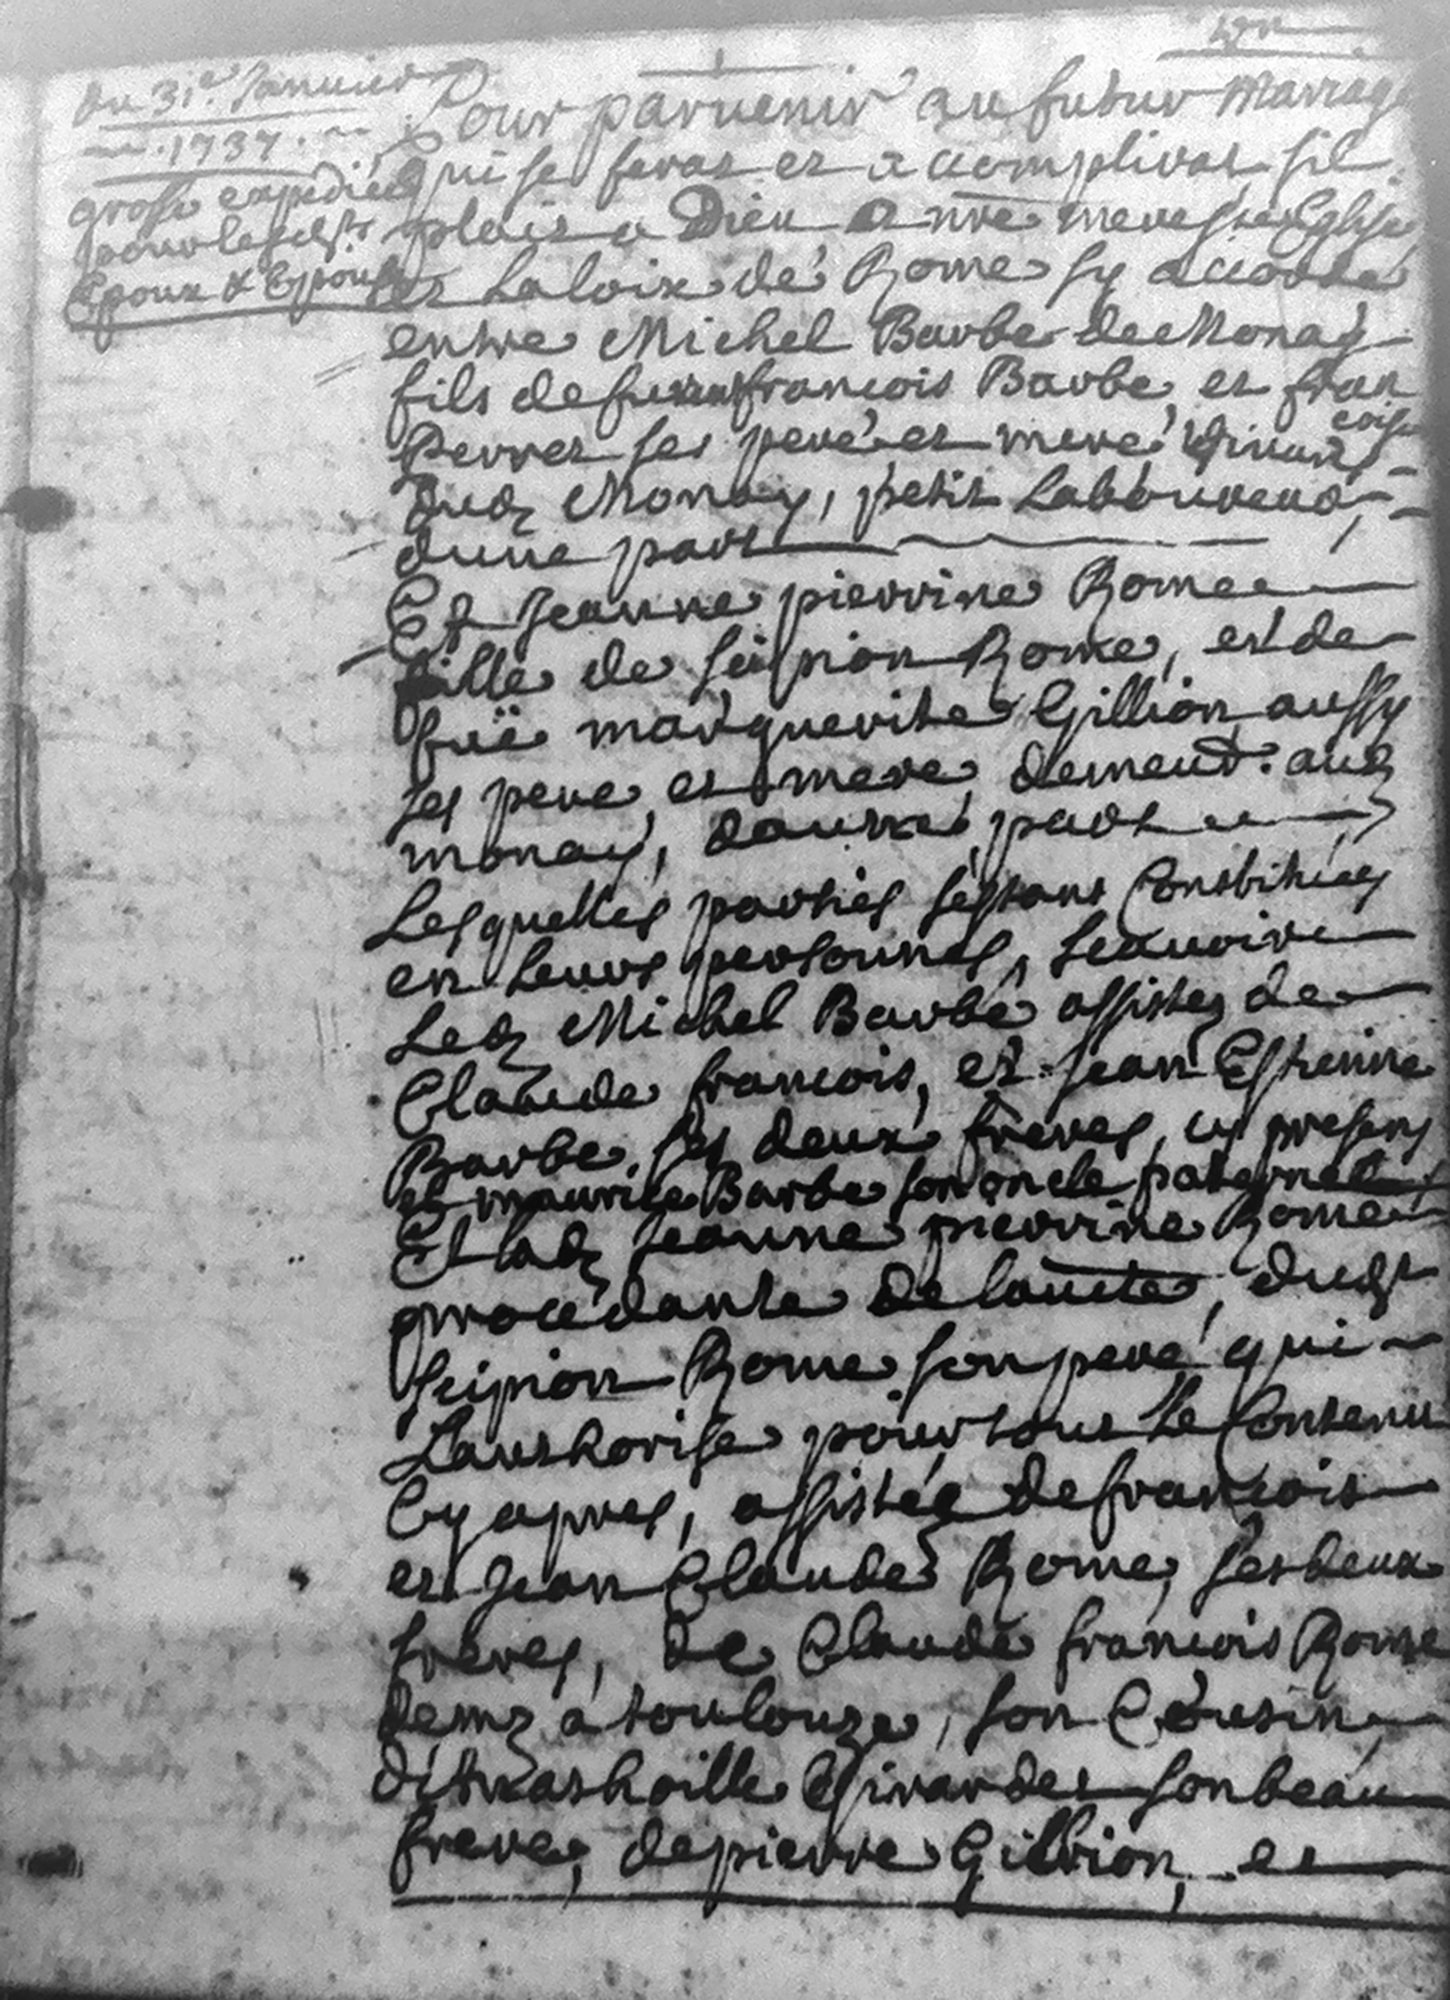 du 31e. Janvier
1737.
grosse expediée
pour lesdts
Epoux & Epouse
Pour parvenir au futur Mariage
qui se feras et accompliras sil
plait a Dieu en nre mere ste Eglise
et La loix de Rome sy accorde
entre Michel Barbe de Monay
fils de feu francois Barbe et fran
coise
Perret ses pere et mere vivants
dud Monay, petit Laboureur,
dune part
Et Jeanne pierrine Rome
fille de Scipion Rome, et de
fuë marguerite Gillion aussy
ses pere et mere demeut. aud
monay, dautre part
Lesquelles parties sestant Constituées
en leurs personnes, scavoir
Led Michel Barbe assistez de
Claude francois, et Jean Estienne
Barbe ses deux freres, cy presens
et maurice Barbe son oncle paternel
Et lad Jeanne pierrine Rome
procedante de lautté, dudt
Scipion Rome son pere qui
Lauthorise pour tout le Contenu
Cy apres, assistée de francois
et Jean Claude Rome, ses deux
freres, de Claude francois Rome
demt a toulouze, son Cousin,
Girardet son beau
frere, de pierre Gillion, et